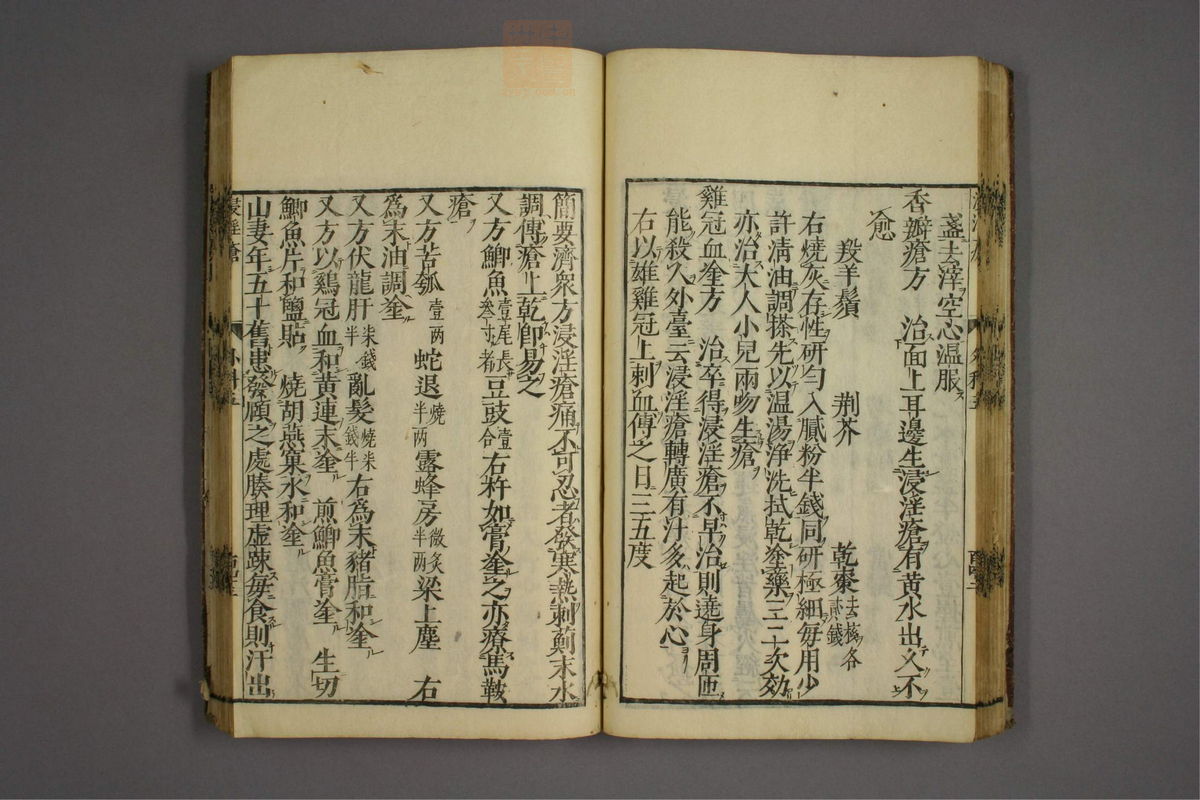 盞去滓空心温服
香瓣瘡方　治面上耳邊生浸淫瘡有黄水出久不
愈
羖羊鬚　荆芥　乾棗去核各貳錢
右燒灰存性研匀入膩粉半錢同研極細毎用少
許清油調搽先以温湯淨洗拭乾塗藥二三次効
亦治大人小兒兩吻生瘡
雞冠血塗方　治卒得浸淫瘡不早治則遶身周匝
能殺人外臺云浸淫瘡轉廣有汁多起於心
右以雄雞冠上刺血傳之日三五度
簡要濟衆方浸淫瘡痛不可忍者發寒熱刺薊末水
調傳瘡上乾即易之
又方鯽魚壹尾長叁寸者豆豉壹合右杵如膏塗之亦療馬鞍
瘡
又方苦瓠壹两蛇退燒半两露蜂房微炙半两梁上塵　右
爲末油調塗
又方伏龍肝半錢亂髮燒半錢右爲末豬脂和塗
又方以鷄冠血和黄連末塗　煎鯽魚膏塗　生切
鯽魚片和鹽貼　燒胡燕窠水和塗
山妻年五十舊患發頤之處腠理虛踈毎食則汗出